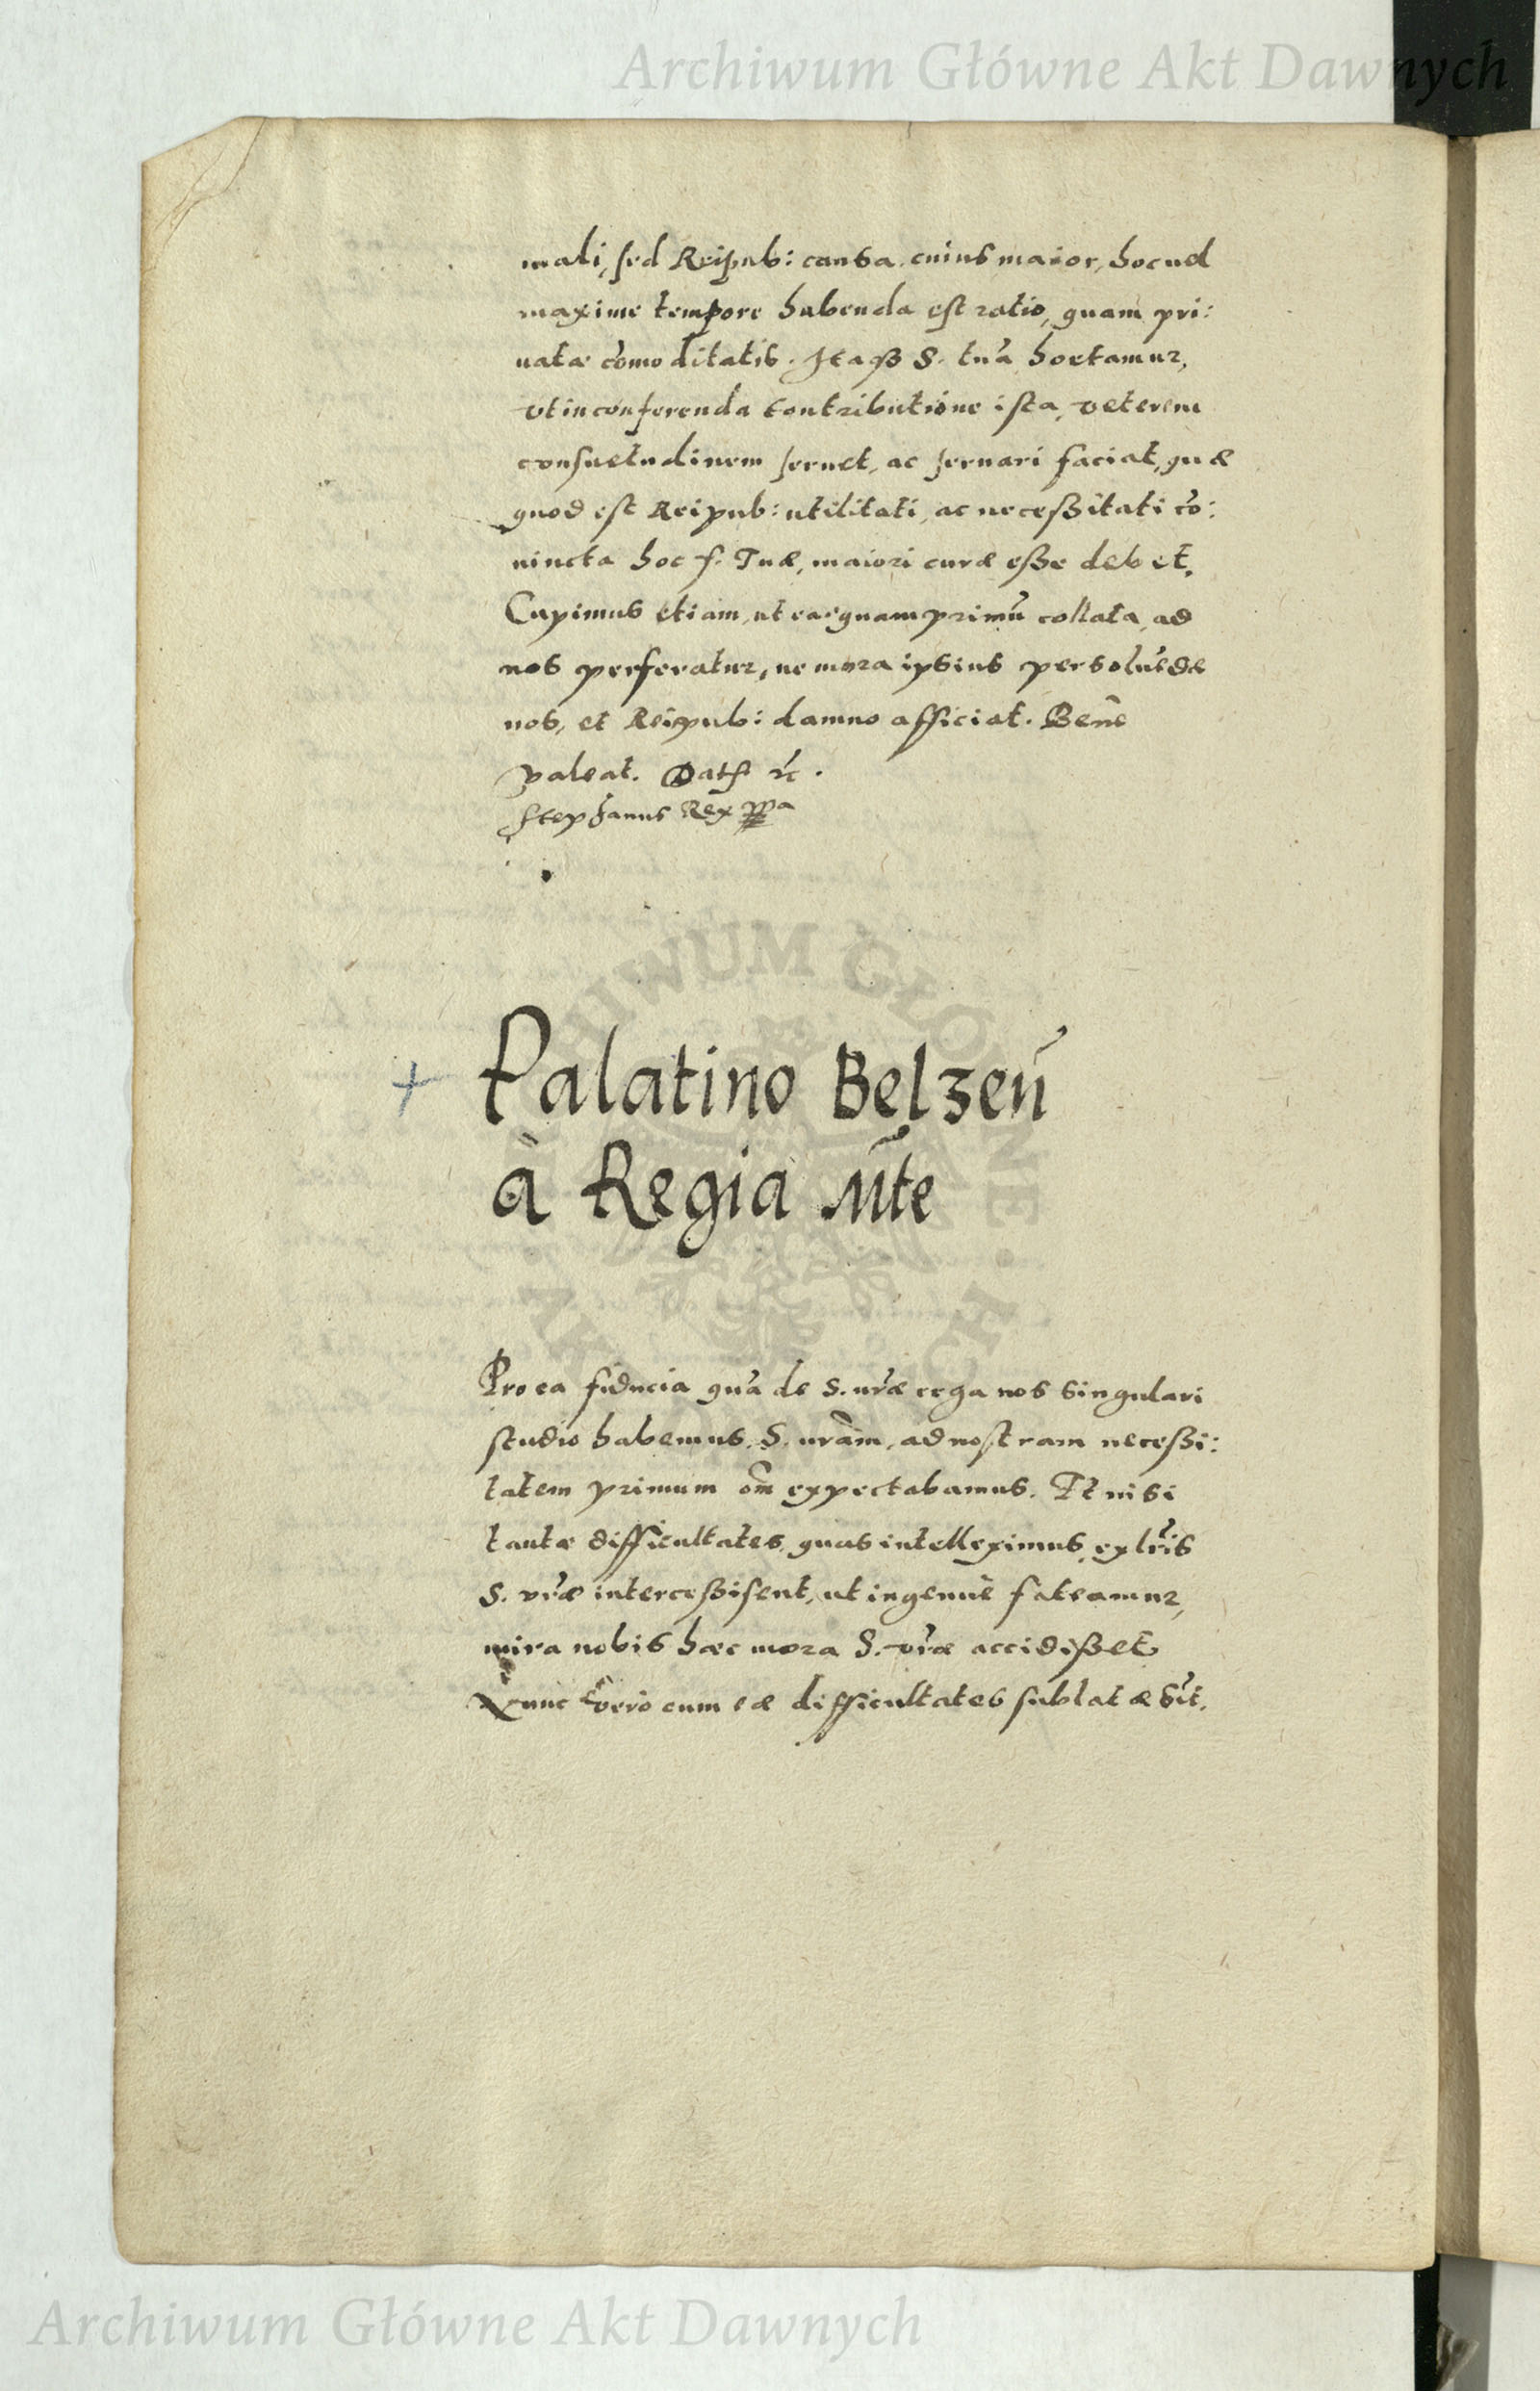 Archiwum Główne Akt Dawnych
mali, sed Reipub: causa. cuius maior, hoc uel
maxime tempore habenda est ratio, quam pri:
uatæ cōmoditatis. Itaqꝫ S. tuā hortamur,
vt in conferenda contributione ista, veterem
consuetudinem seruet, ac seruari faciat, quæ
quod est Reipub: utilitati, ac necessitati cō:
iuncta hoc S. Tuæ, maiori curæ esse debet.
Cupimus etiam, ut ea quamprimū collata, ad
nos perferatur, ne mora ipsius persoluēdæ
nos, et Reipub: damno afficiat. Bene
valeat. Dat etc.
Stephanus Rex ppa
+ Palatino Belzeñ
à Regia Mte
Pro ea fiducia quā de S. vrǣ erga nos singulari
studio habemus, S. vram, ad nostram necessi:
tatem primum om̄ expectabamus. Et nisi
tantæ difficultates, quas intelleximus ex lris
S. vræ intercessisent, ut ingenuè fateamur,
mira nobis hæc mora S. vræ accidisset
Nunc vero cum eæ difficultates sublatæ sūt,
Archiwum Główne Akt Dawnych